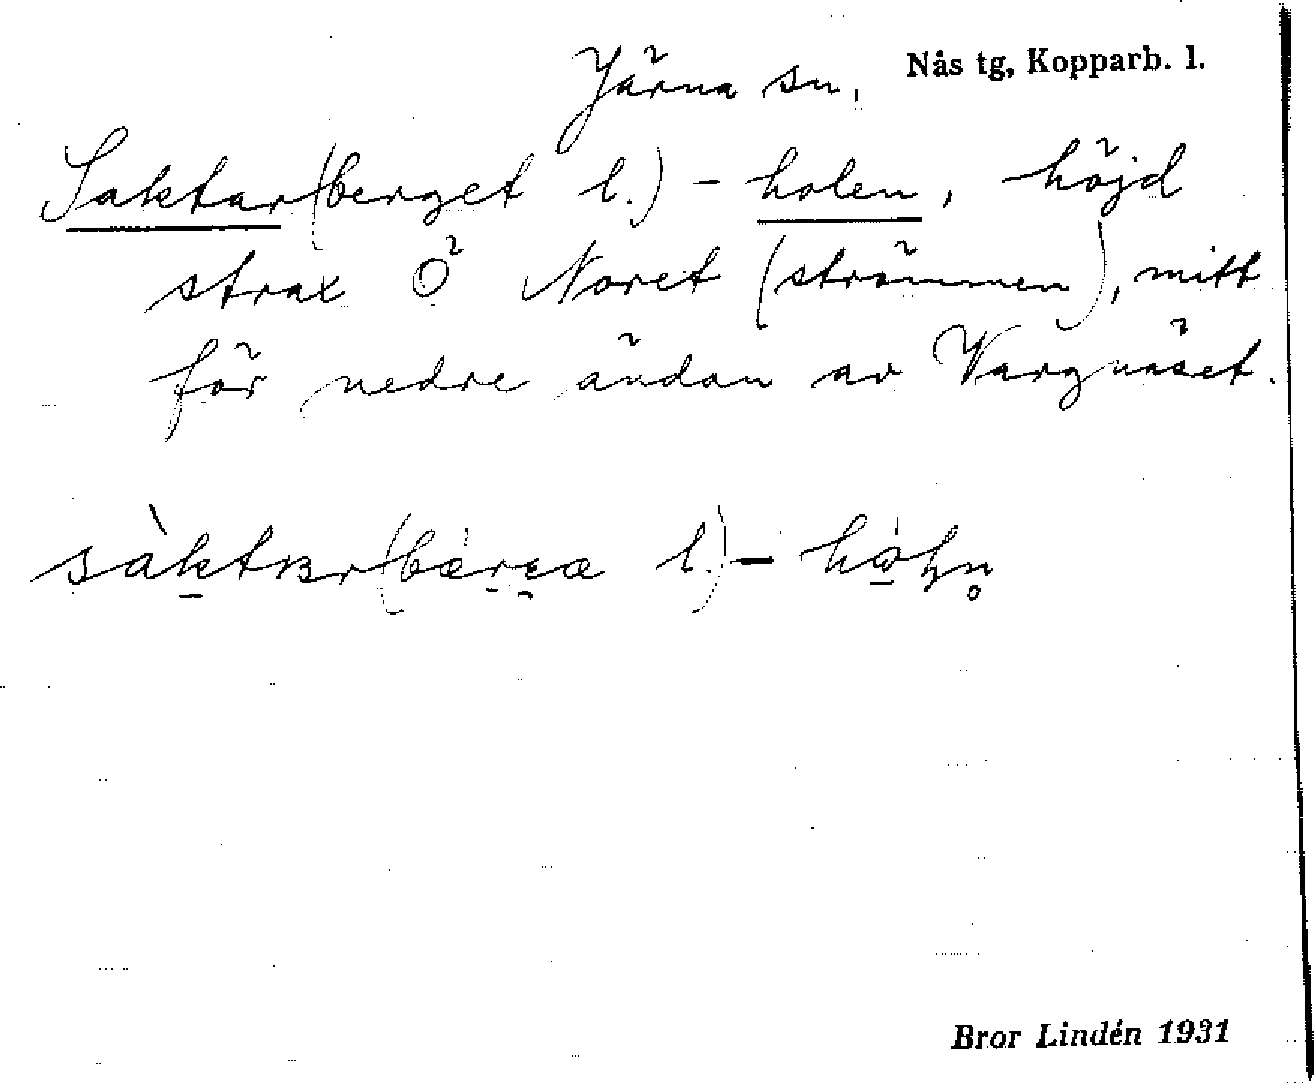 Järna sn. Nås tg, Kopparb. l.
Saktar(berget l.)-holen, höjd
strax Ö Noret (strömmen), mitt
för nedre ändan av Vargnäset.
l.)-
Bror Lindén 1931